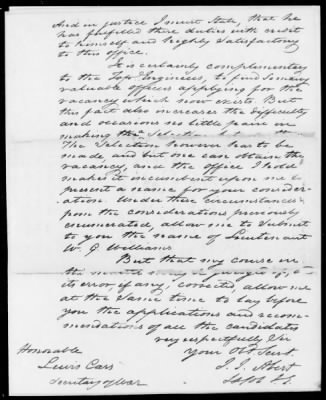 And in justice I must state, that he
has fulfilled these duties with credit
to himself and highly satisfactory
to this office.
It is certainly complimentary
to the Top Engineers, to find so many
valuable officers applying for the
vacancy which now exists. But
this fact also increases the difficulty
and occasions no little pain in
making the selection
The selection however has to be
made and but one can obtain the
vacancy, and the office I hold
makes it incumbent upon me to
present a name for your consider-
ation. Under these circumstances
from the considerations previously
enumerated, allow me to submit
to you the name of Lieutenant
W. G Williams
But that my course in
the matter may be judged of, &
its error, if any, corrected, allow me
at the same time to lay before
you the applications and recom-
mendations of all the candidates
very respectfully Sir
Your Obt Servt.
J. J. Abert
Honorable
Lewis Cass
Secretary of War